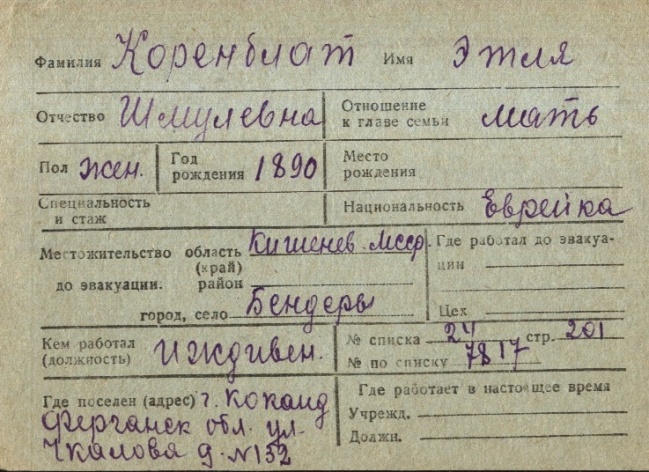 Фамилия Коренблат Имя Этля
Отчество Шмулевна Отношение к главе семьи мать
Пол жен. Год рождения 1890 Место рождения
Специальность и стаж Национальность Еврейка
Местожительство область (край) Кишенев. мсср. Где работал до эвакуа-
до эвакуации. район ции
город, село Бендеры Цех
Кем работал (должность) Иждивен. № списка 24 стр. 201
№ по списку 7817
Где поселен (адрес) г. Коканд Где работает в настоящее время
Ферганск обл. ул. Учрежд.
Чкалова д. №152 Должн.